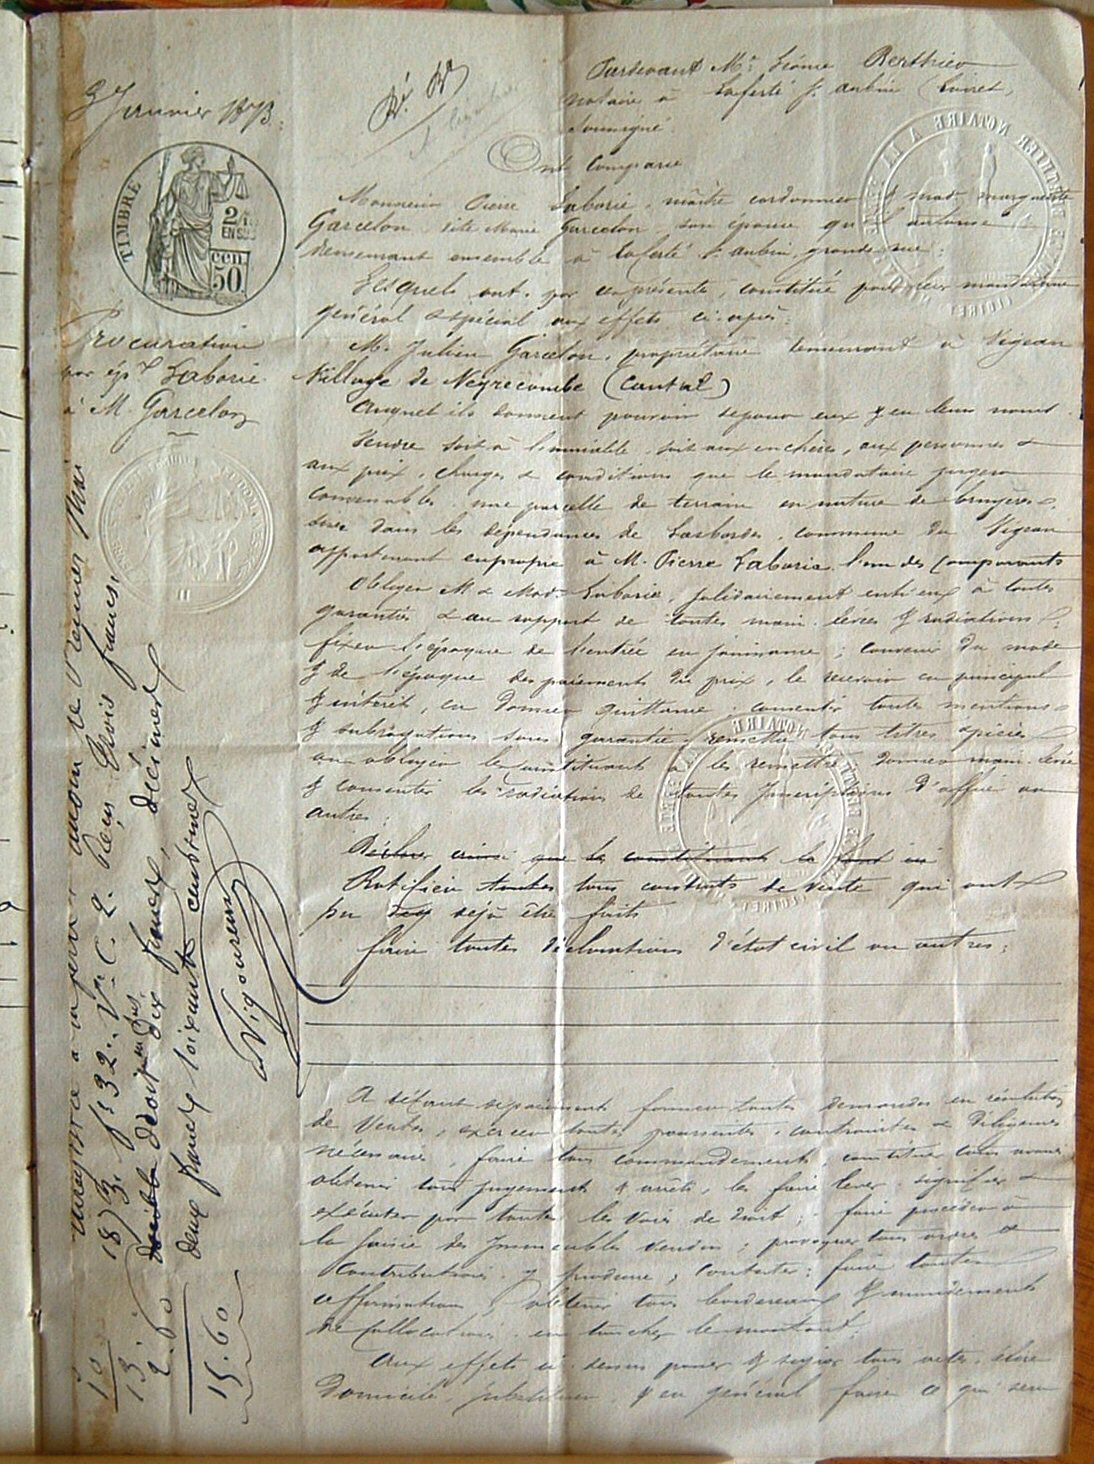 9 Janvier 1873.
TIMBRE
2/10
EN SUS
cen.
50
Procuration
par ép. Laborie
à M. Garcelon
Pardevant Me Berthier
notaire à Laferté St Aubin (Loiret)
soussigné.
Ont Comparu
Monsieur Pierre Laborie, maître cordonnier & Mad. marguerite
Garcelon, dite Marie Garcelon, son épouse qu'il autorise
demeurant ensemble à Laferté St Aubin, grande rue.
Lesquels ont, par ces présentes, constitué pour leur mandataire
général & spécial aux effets ci-après:
M. Julien Garcelon, propriétaire demeurant à Vigean
Village de Neyrecombe (Cantal)
Auquel ils donnent pouvoir de pour eux & en leurs noms.
Vendre soit à l'amiable, soit aux enchères, aux personnes &
aux prix, charges & conditions que le mandataire jugera
convenables une parcelle de terrain en nature de bruyères,
sise dans les dépendances de Lasbordes, commune du Vigean
appartenant en propre à M. Pierre Laborie, l'un des Comparants
Obliger M & Mad. Laborie, solidairement entr'eux à toutes
garanties & au rapport de toutes main-levées & radiations;
fixer l'époque de l'entrée en jouissance; convenir du mode
& de l'époque des paiements du prix, le recevoir en principal
& intérêt, en donner quittance, consentir toutes mentions
& subrogations sans garantie, remettre tous titres & pièces
ou obliger les constituants à les remettre, donner main-levée
& consentir les radiations de toutes Inscriptions d'office ou
autres;
Déclarer ainsi que les constituants le
Ratifier toutes tous contrats de vente qui ont
pu déjà être faits
faire toutes déclarations d'état civil ou autres;
A défaut de paiement former toutes demandes en résolution
de Ventes, exercer toutes poursuites, contraintes & diligences
nécessaires, faire tous commandements, constituer tous avoués
obtenir tous jugements & arrêts, les faire lever, signifier &
exécuter par toutes les voies de droit; faire procéder à
la saisie des Immeubles vendus; provoquer tous ordres &
Contributions, y produire, contester; faire toutes
affirmations, obtenir tous bordereaux & mandements
de Collocations, en toucher le montant;
Aux effets ci-dessus passer & signer tous actes, élire
Domicile, substituer & en général faire ce qui sera
Enregistré à la ferté le Premier Mai
1873 fo 32 Vo C. 2. Reçu trois francs,
droit dix francs, décimes
deux francs soixante centimes
Vigoureux
10
3
2.60
15.60